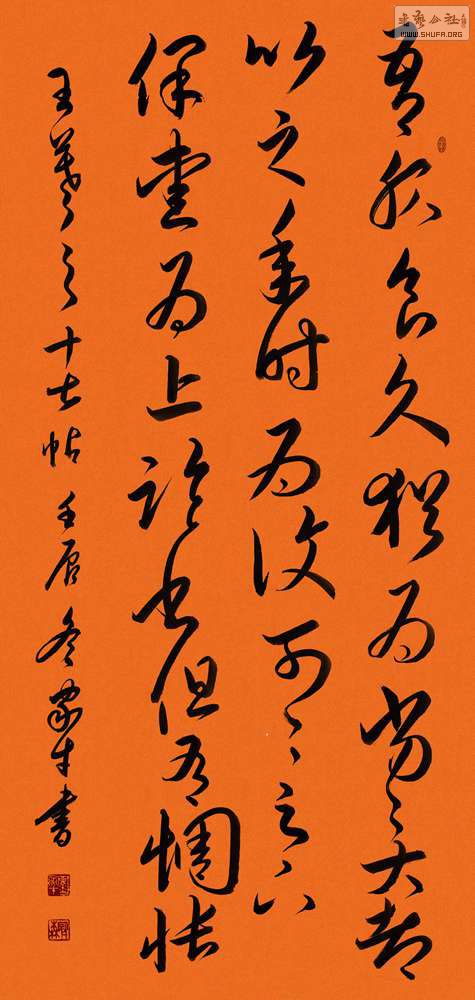 书艺公社
WWW.SHUFA.ORG
吾服食久猶為劣〻大都
比之年時為復可〻足下
保愛為上臨書但有惆悵
王羲之十七帖 壬辰冬 書